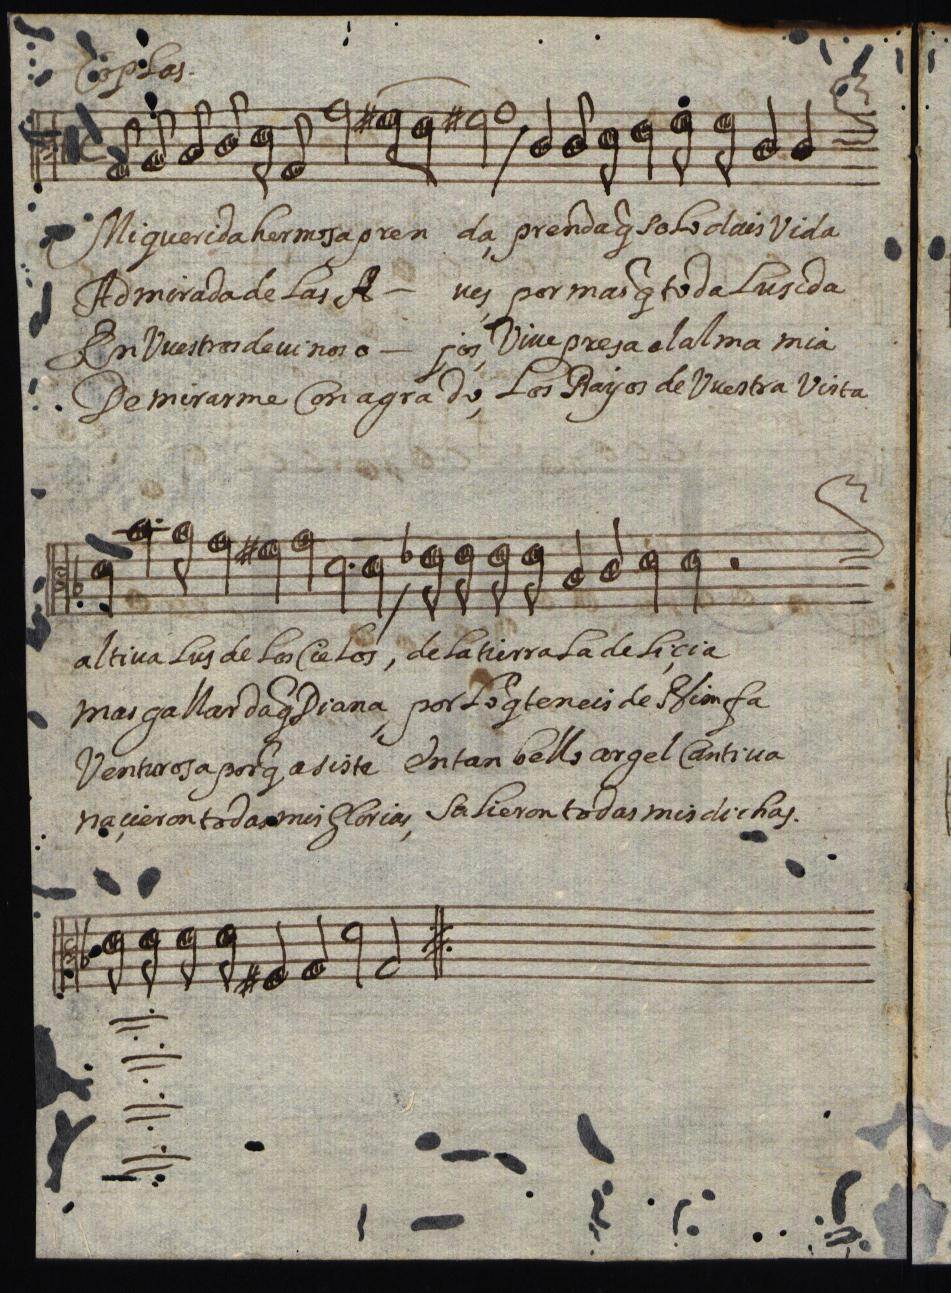 Coplas.
Mi querida hermosa pren da, prenda q̃ solo dais Vida
Admirada de las A — ves por mas q̃ toda Lusida
En Vuestros deuinos o — jos, Viue presa el alma mia
De mirarme Con agrado, Los Rayos de Vuestra Vista
altiua Lus de los Cielos, de la tierra La deliçia
mas gallarda q̃ Diana, por lo q̃ teneis de Nimfa
Venturosa porq̃ asista En tan bello argel Cautiua
naçieron todas mis glorias, Salieron todas mis dichas.